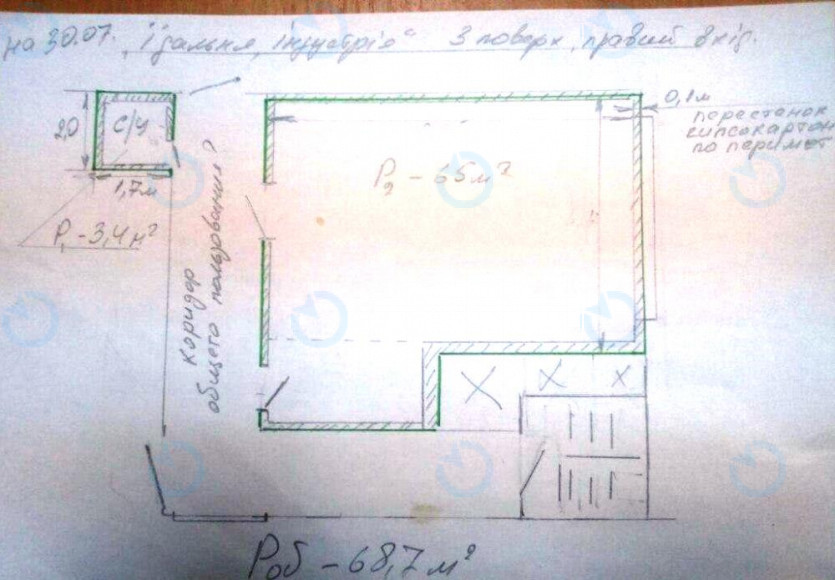 на 30.07. „їдальня, індустрія“ 3 поверх, правий вхід.
2,0
с/у
1,7м
P₁ - 3,4 м²
коридор
общего пользования?
P₂ - 65 м²
0,1м
перестанок
гипсокартон
по перимет
Pоб - 68,7 м²